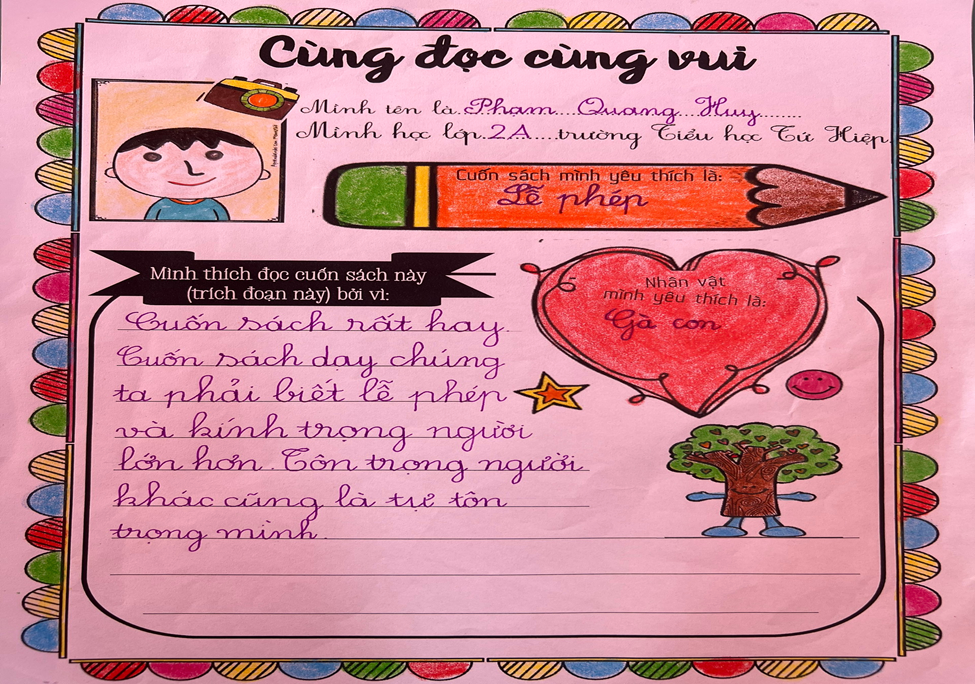 Cùng đọc cùng vui
Mình tên là Phạm Quang Huy
Mình học lớp 2A trường Tiểu học Tứ Hiệp
Cuốn sách mình yêu thích là:
Lễ phép
Mình thích đọc cuốn sách này
(trích đoạn này) bởi vì:
Nhân vật
mình yêu thích là:
Gà con
Cuốn sách rất hay.
Cuốn sách dạy chúng
ta phải biết lễ phép
và kính trọng người
lớn hơn. Tôn trọng người
khác cũng là tự tôn
trọng mình.